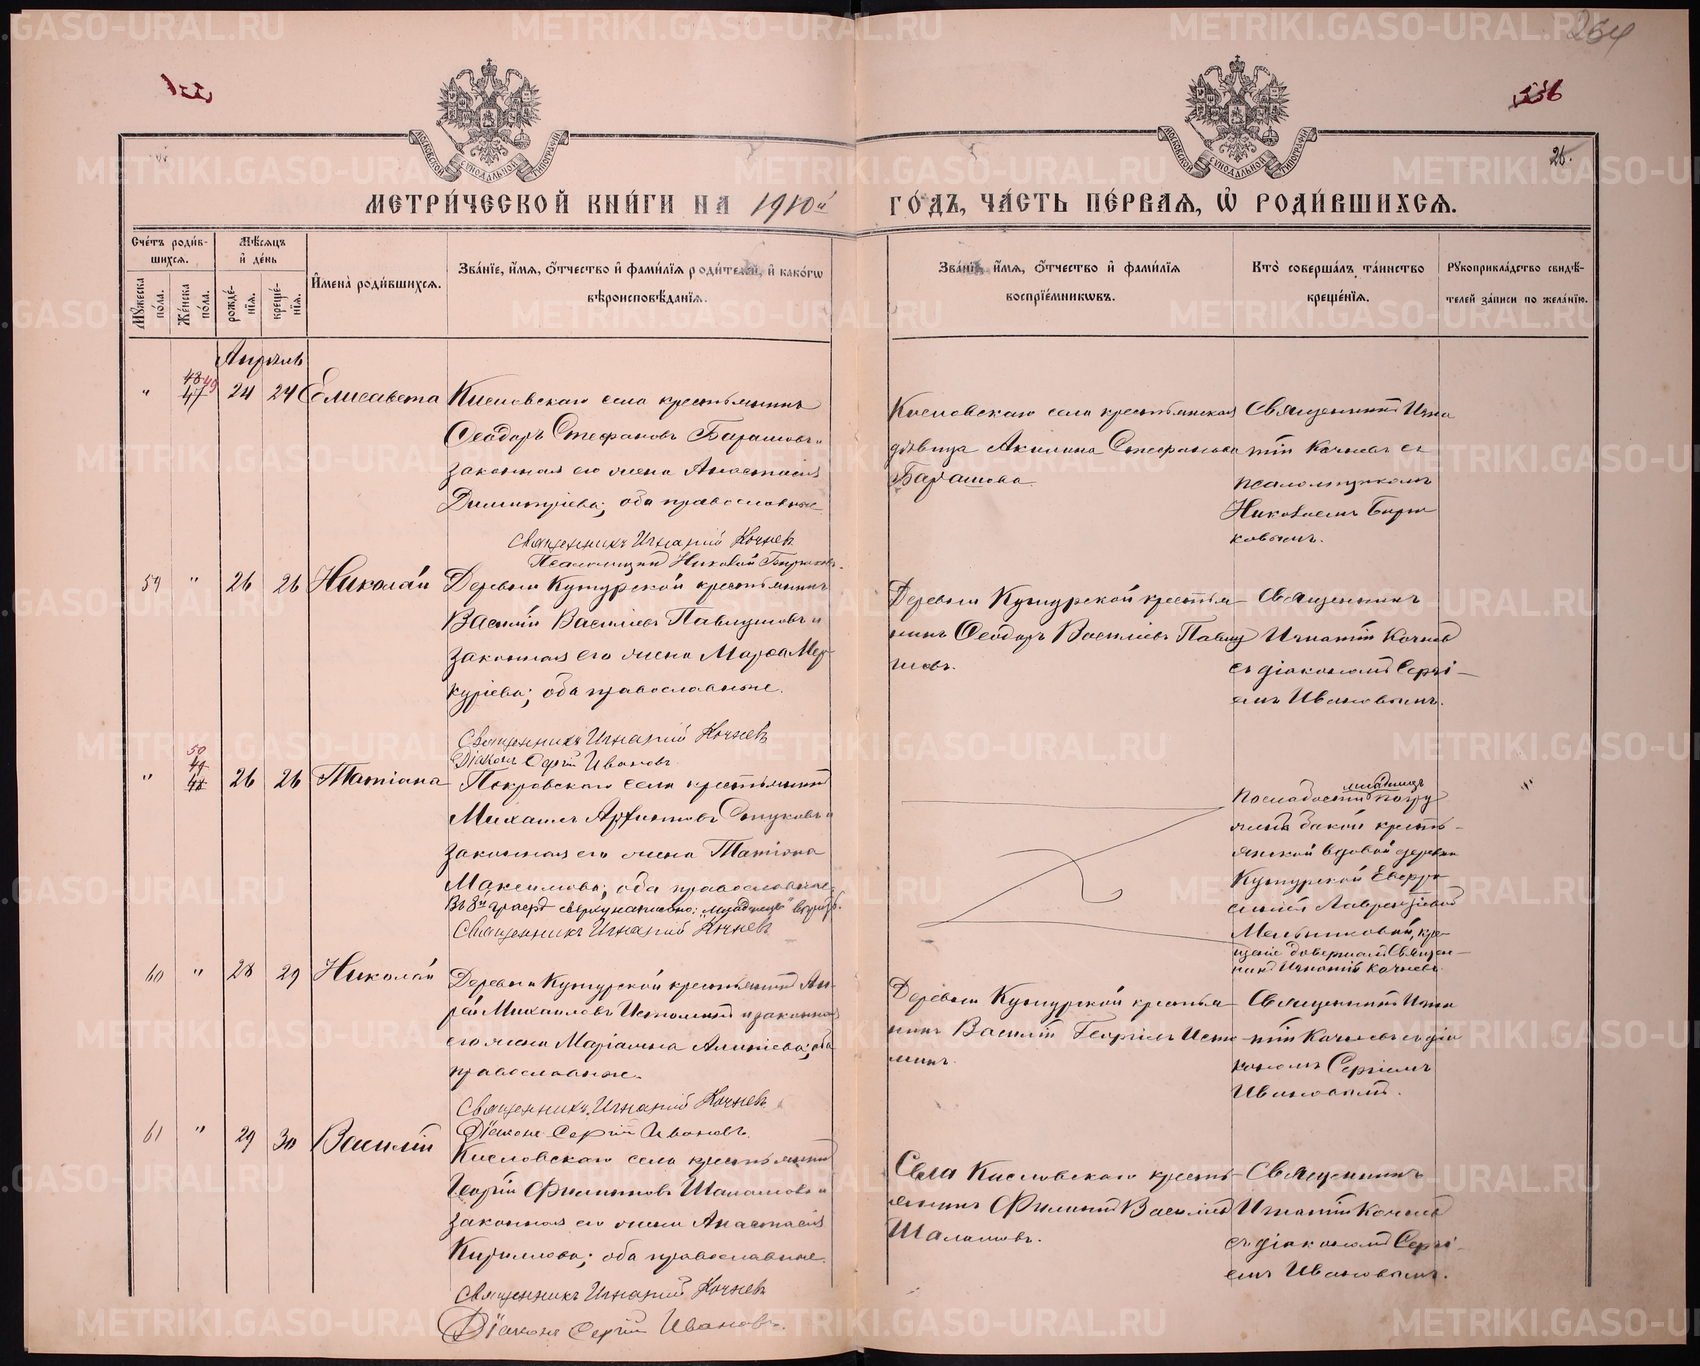 264
336
336
26.
МОСКОВСКОЙ СѴНОДАЛЬНОЙ ТИПОГРАФІИ
МОСКОВСКОЙ СѴНОДАЛЬНОЙ ТИПОГРАФІИ
МЕТРИ́ЧЕСКОЙ КНИ́ГИ НА 1910й ГО́ДЪ, ЧА́СТЬ ПЕ́РВАЯ, Ѡ РОДИ́ВШИХСЯ.
Сче́тъ роди́в-
шихся.
Мꙋжеска по́ла.
Же́нска по́ла.
Мѣ́сяцъ и де́нь
рожде́нїя.
креще́нїя.
Имена̀ роди́вшихся.
Зва́нїе, и́мя, о́тчество и фами́лїя роди́телей, и како́гѡ
вѣроисповѣ́данїя.
Зва́нїе, и́мя, о́тчество и фами́лїя
воспрїе́мникѡвъ.
Кто̀ соверша́лъ та́инство
креще́нїя.
Рꙋкоприкла́дство свидѣ́-
телей за́писи по жела́нїю.
Апрѣль
" 48 49 47 24 24 Елисавета
Кисловскаго села крестьянинъ
Ѳеодоръ Стефановъ Барашовъ и
законная его жена Анастасія
Димитріева; оба православные
Священникъ Игнатій Кочневъ
Псаломщикъ Николай Бирюковъ.
Кисловскаго села крестьянская
дѣвица Акилина Стефанова
Барашова.
Священникъ Игна
тій Кочневъ съ
псаломщикомъ
Николаемъ Бирю
ковымъ.
59 " 26 26 Николай
Деревни Кутурской крестьянинъ
Василій Василіевъ Павлушовъ и
законная его жена Марѳа Мер-
куріева; оба православные.
Священникъ Игнатій Кочневъ
Діаконъ Сергій Ивановъ.
Деревни Кутурской крестья-
нинъ Ѳеодоръ Василіевъ Павлу
шовъ.
Священникъ
Игнатій Кочневъ
съ діакономъ Сергі-
емъ Ивановымъ.
" 50 49 48 26 26 Татіана
Покровскаго села крестьянинъ
Михаилъ и
законная его жена Татіана
Максимова; оба православные.
Въ 8й графѣ сверху написано: "младенецъ" вѣрно.
Священникъ Игнатій Кочневъ
младенецъ
По слабости погру
жена бабкой кресть-
янской вдовой деревни
Кутурской Евфро
синіей Лаврентіевой
кре-
щеніе довершалъ Священ-
никъ Игнатій Кочневъ.
60 " 28 29 Николай
Деревни Кутурской крестьянинъ Ан-
рей Михаиловъ Истоминъ и законная
его жена Маріамна оба
православные.
Священникъ Игнатій Кочневъ
Діаконъ Сергій Ивановъ.
Деревни Кутурской крестья-
нинъ Василій Георгіевъ Исто
минъ.
Священникъ Игна
тій Кочневъ съ діа
кономъ Сергіемъ
Ивановымъ.
61 " 29 30 Василій
Кисловскаго села крестьянинъ
Георгій Филипповъ Шалашовъ и
законная его жена Анастасія
Кириллова; оба православные.
Священникъ Игнатій Кочневъ
Діаконъ Сергій Ивановъ.
Села Кисловскаго кресть-
янинъ Филиппъ Василіевъ
Шалашовъ.
Священникъ
Игнатій Кочневъ
съ діакономъ Сергі-
емъ Ивановымъ.
METRIKI.GASO-URAL.RU